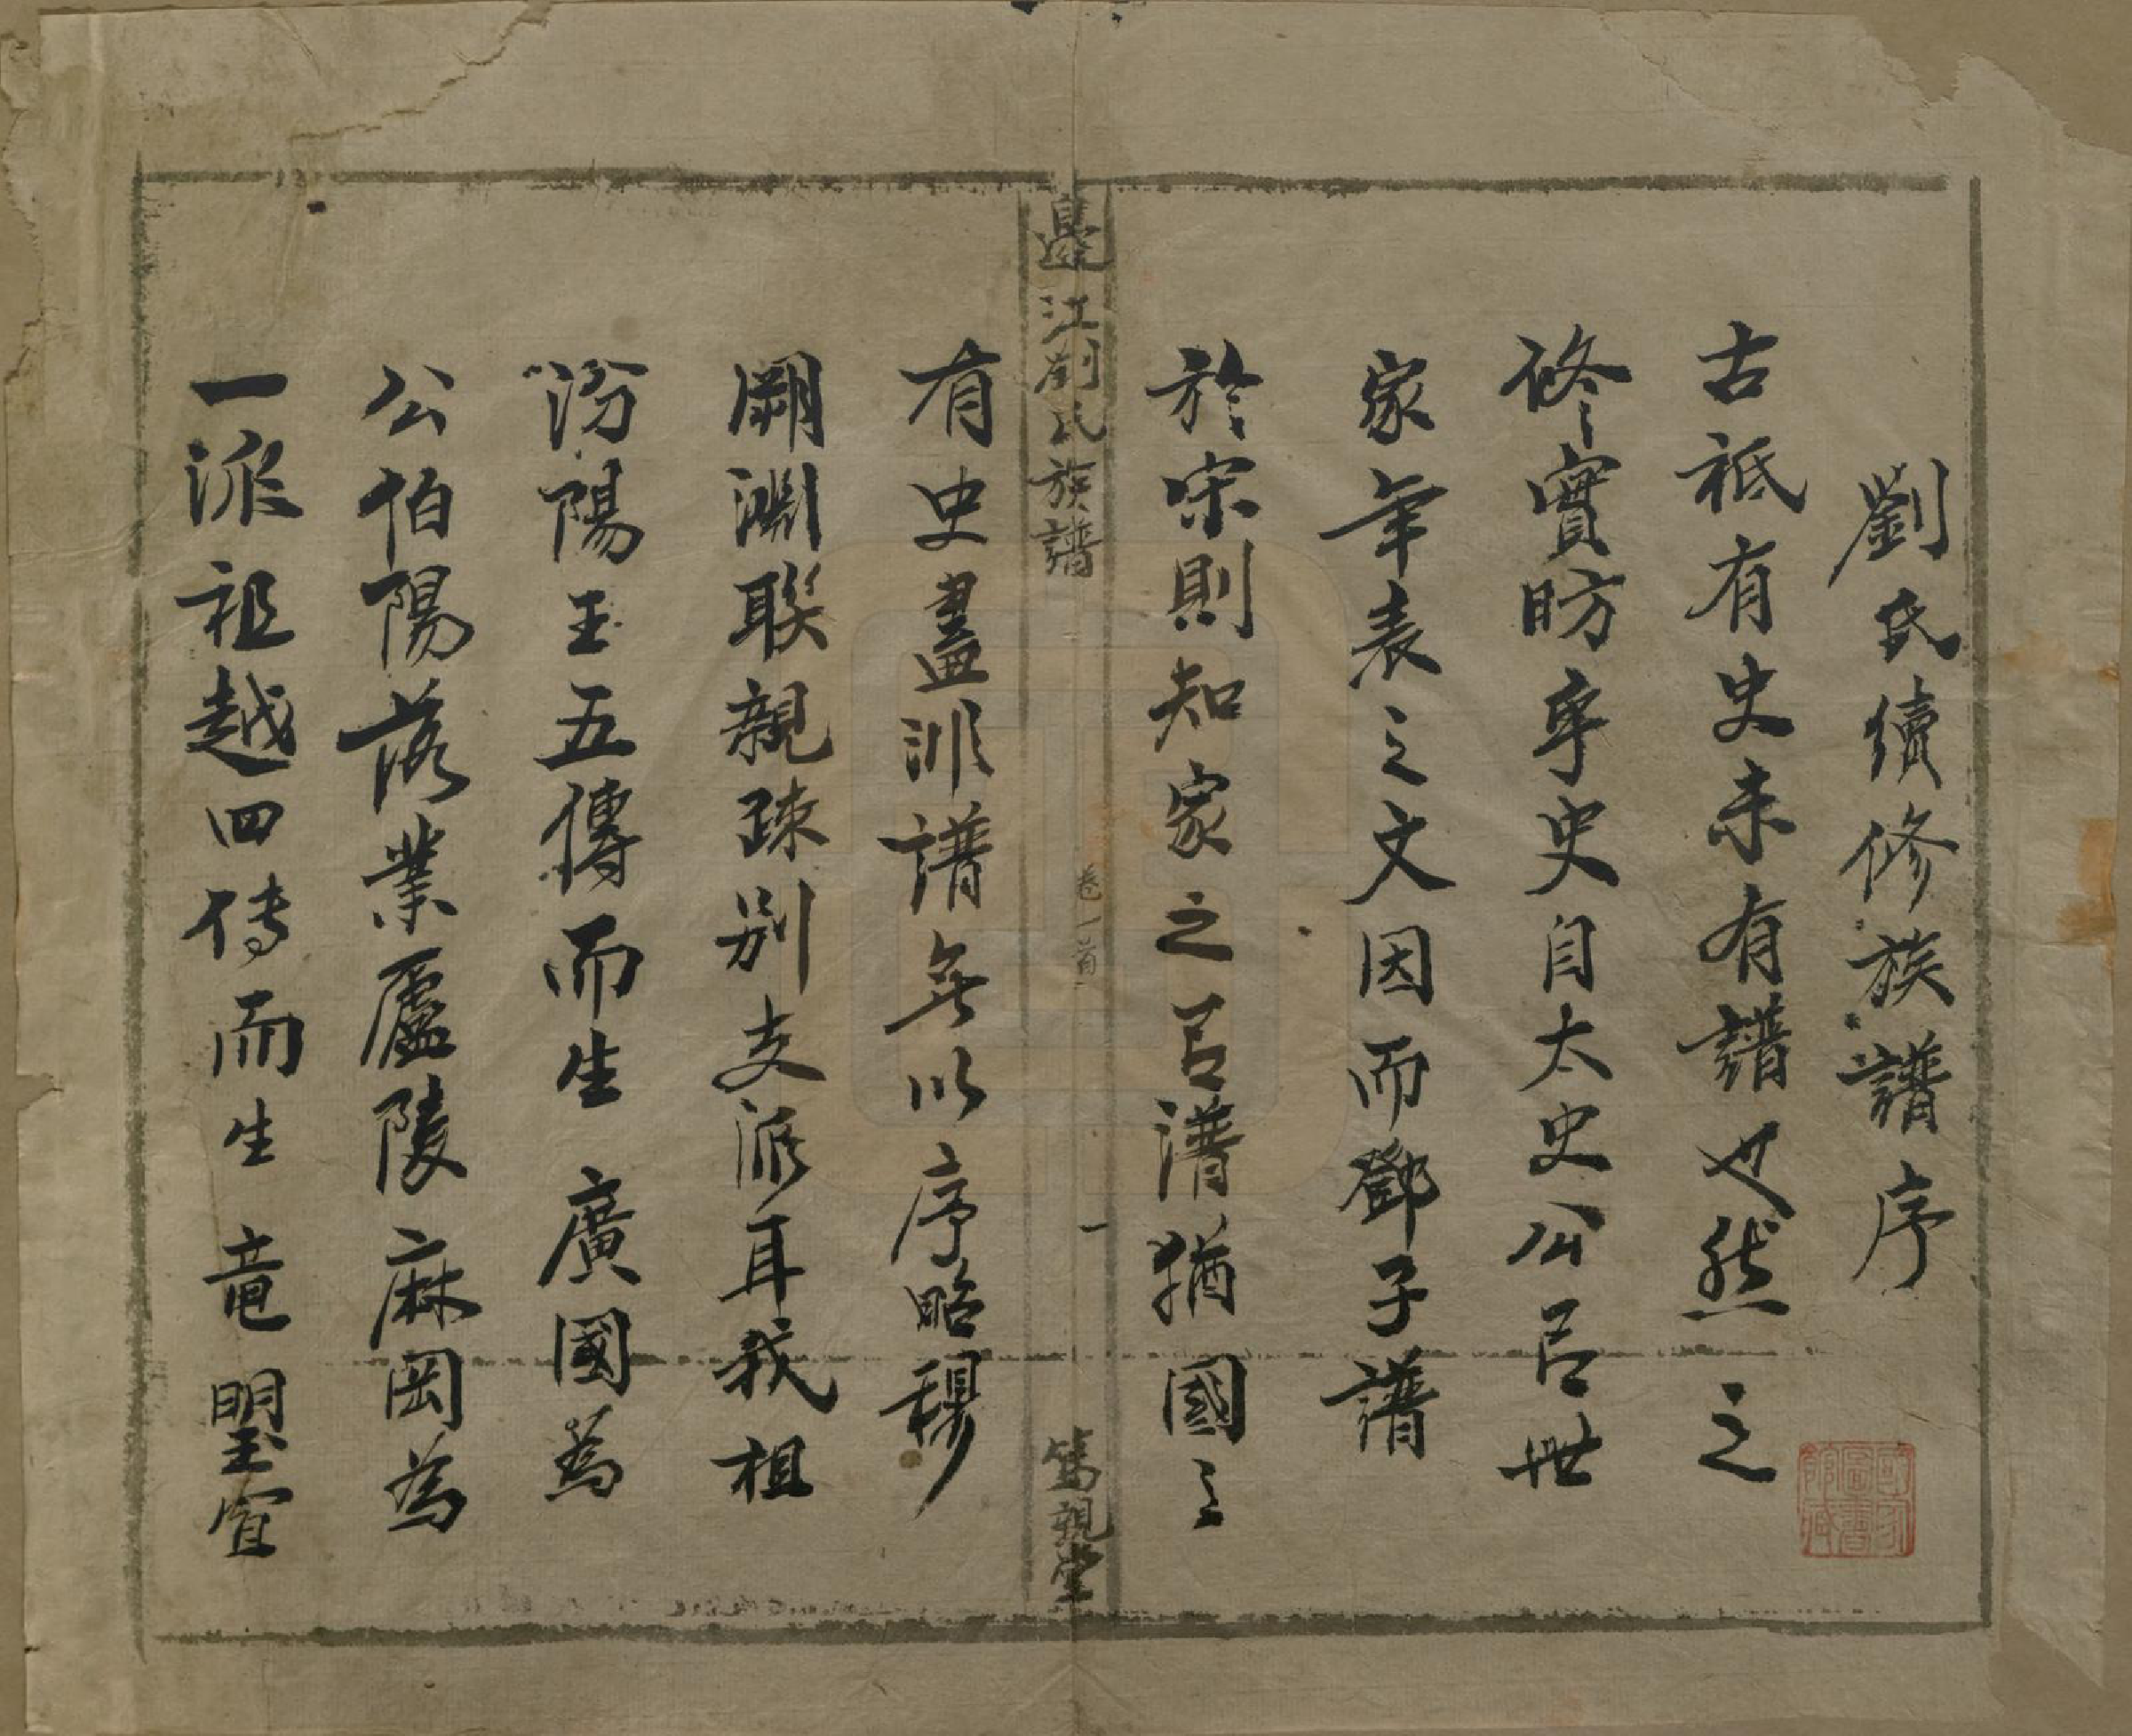 劉氏續修族譜序
古祗有史未有譜也然之
修實昉乎史自太史公呂世
家年表之文因而鄧子譜
於宋則知家之呂譜猶國之
邊江劉氏族譜
卷一首
一
篤親堂
有史盡非譜無以序昭穆
溯淵聯親疎別支派耳我祖
汾陽王五傳而生廣國為
公伯陽落業廬陵麻岡為
一派祖越四传而生竜曌宜
國家圖書館藏